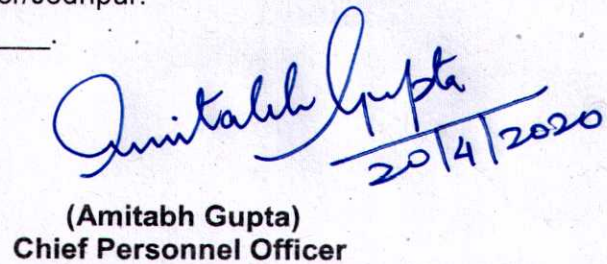 /Jodhpur.
Amitabh Gupta
20/4/2020
(Amitabh Gupta)
Chief Personnel Officer